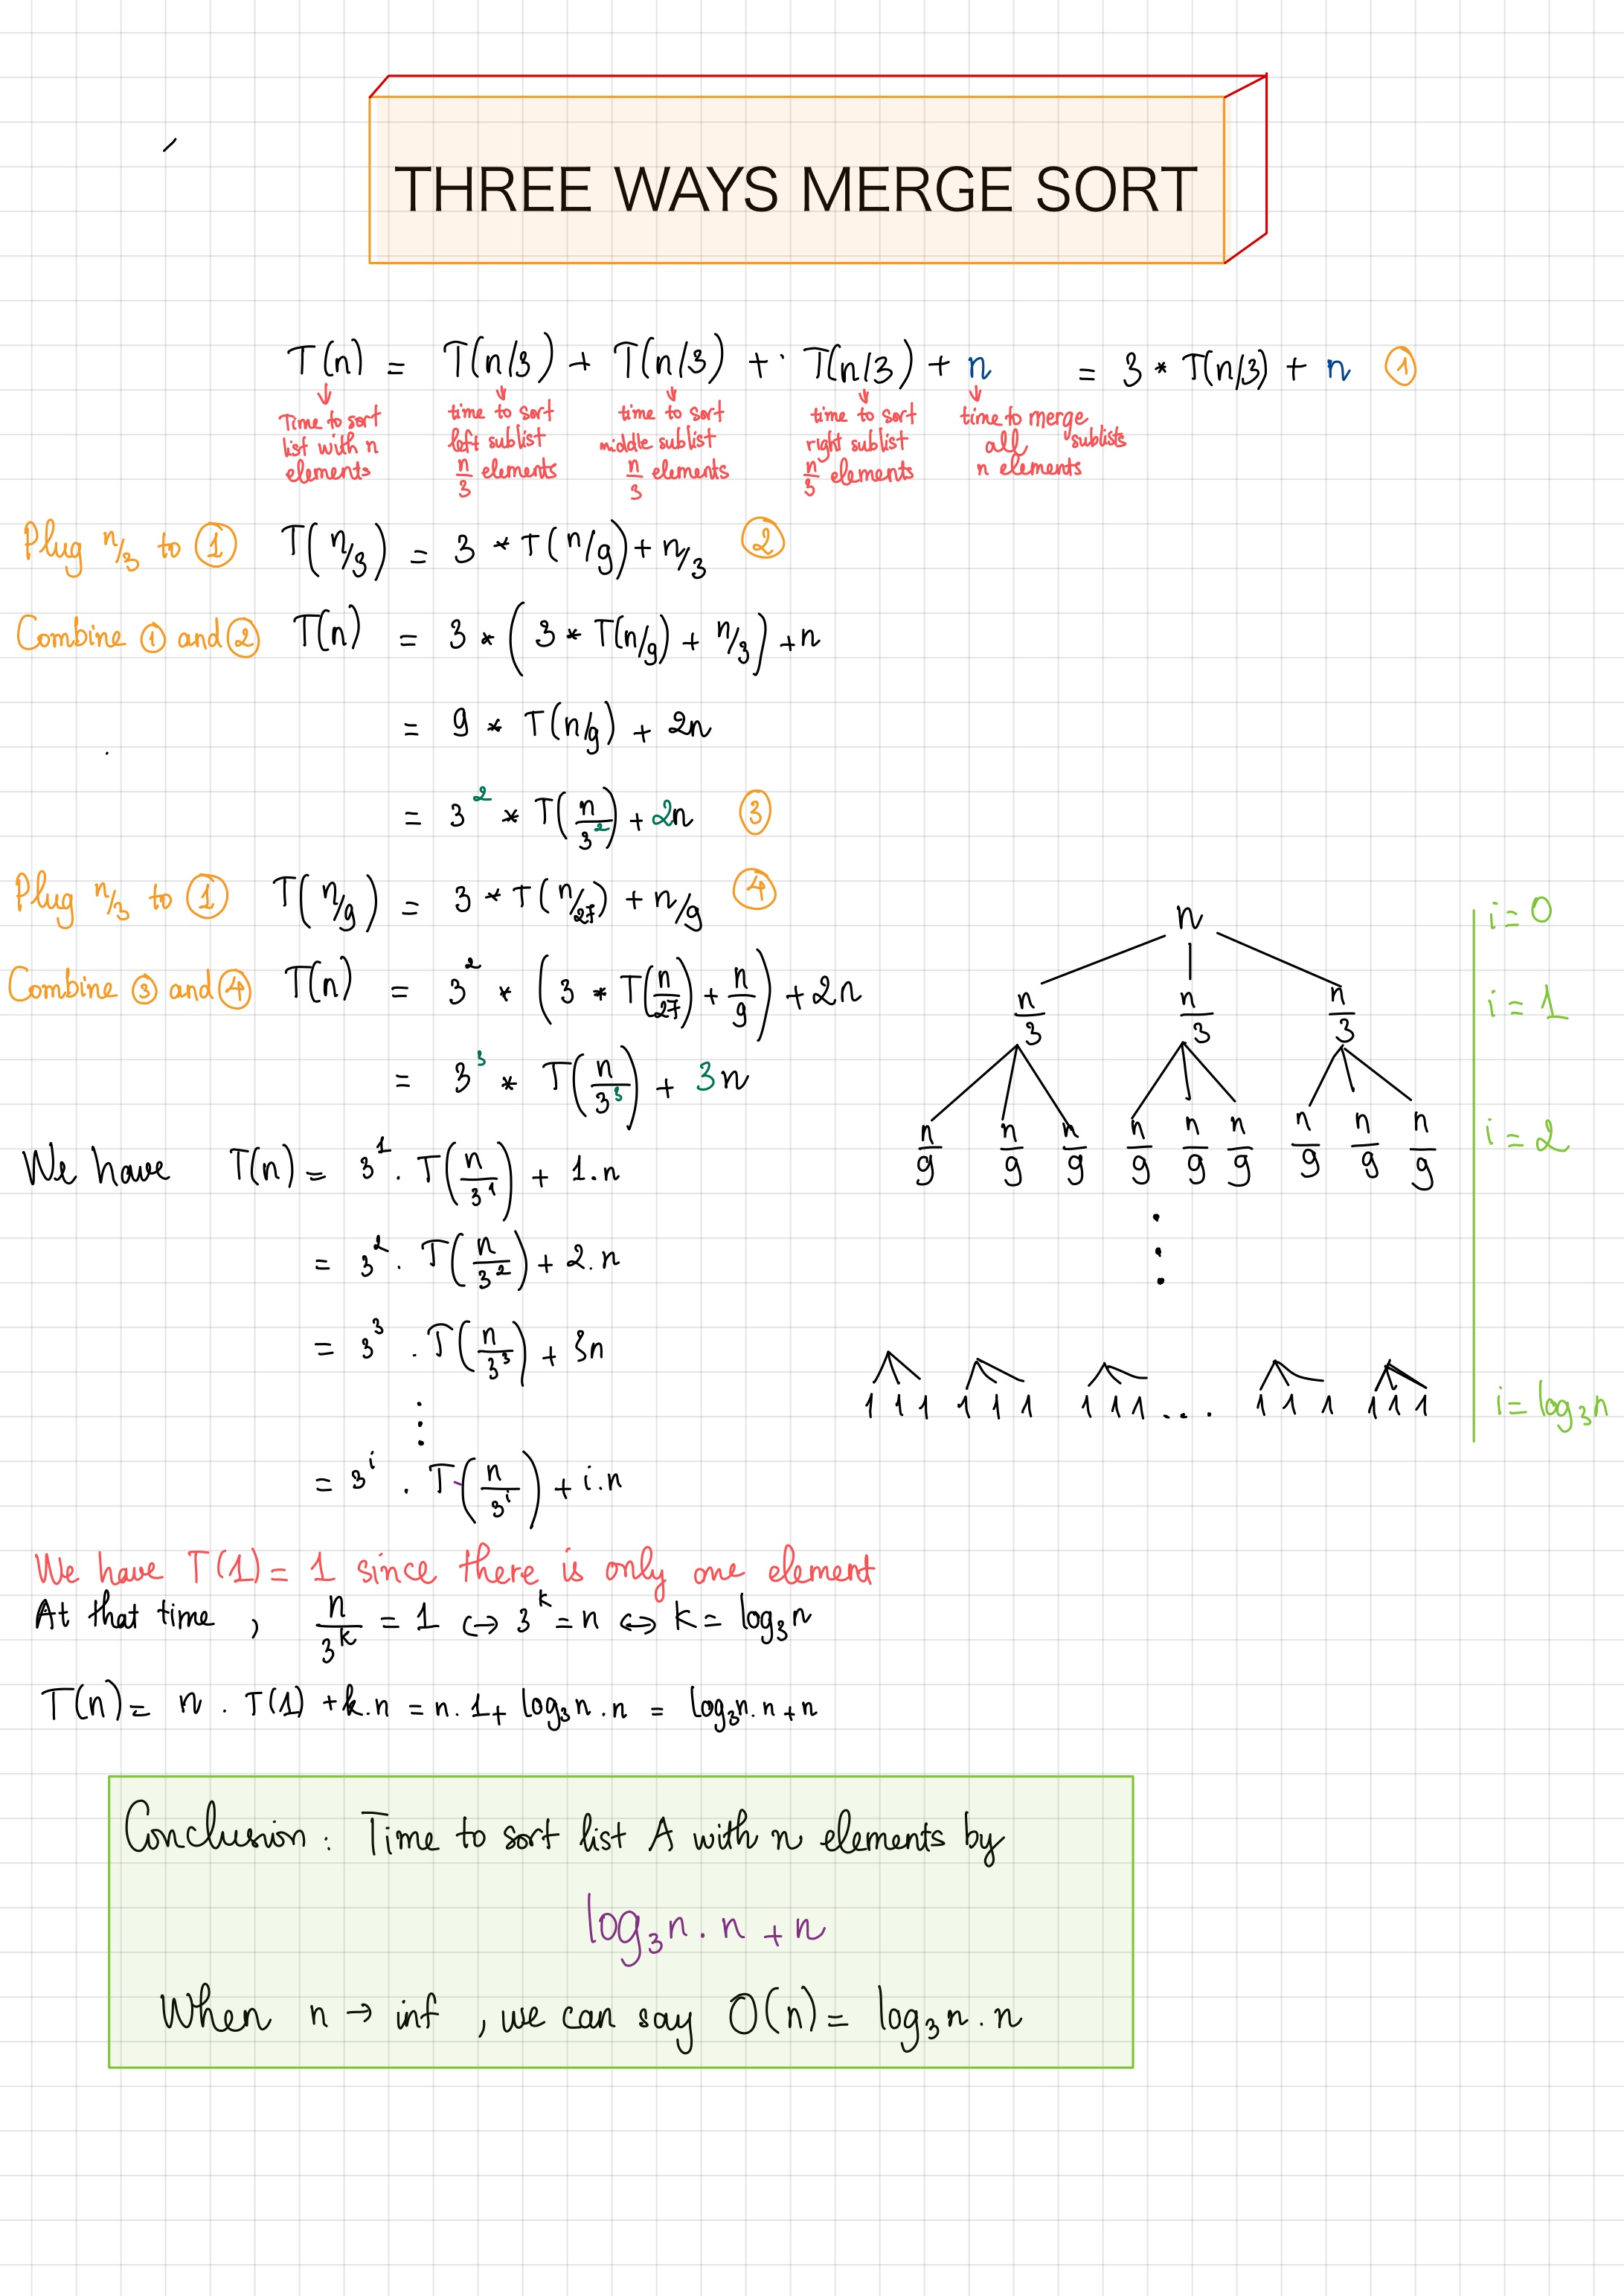 THREE WAYS MERGE SORT
T(n) = T(n/3) + T(n/3) + T(n/3) + n = 3 * T(n/3) + n ①
Time to sort list with n elements
time to sort left sublist n/3 elements
time to sort middle sublist n/3 elements
time to sort right sublist n/3 elements
time to merge all sublists n elements
Plug n/3 to ① T(n/3) = 3 * T(n/9) + n/3 ②
Combine ① and ② T(n) = 3 * (3 * T(n/9) + n/3) + n
= 9 * T(n/9) + 2n
= 3² * T(n/3²) + 2n ③
Plug n/3 to ① T(n/9) = 3 * T(n/27) + n/9 ④
Combine ③ and ④ T(n) = 3² * (3 * T(n/27) + n/9) + 2n
= 3³ * T(n/3³) + 3n
We have T(n) = 3¹ . T(n/3¹) + 1.n
= 3² . T(n/3²) + 2.n
= 3³ . T(n/3³) + 3n
⋮
= 3ⁱ . T(n/3ⁱ) + i.n
n i = 0
n/3 n/3 n/3 i = 1
n/9 n/9 n/9 n/9 n/9 n/9 n/9 n/9 n/9 i = 2
⋮
1 1 1 1 1 1 1 1 1 ... 1 1 1 1 1 1 i = log₃n
We have T(1) = 1 since there is only one element
At that time , n/3ᵏ = 1 ↔ 3ᵏ = n ↔ k = log₃n
T(n) = n . T(1) + k.n = n.1 + log₃n . n = log₃n . n + n
Conclusion : Time to sort list A with n elements by
log₃n . n + n
When n → inf , we can say O(n) = log₃n . n